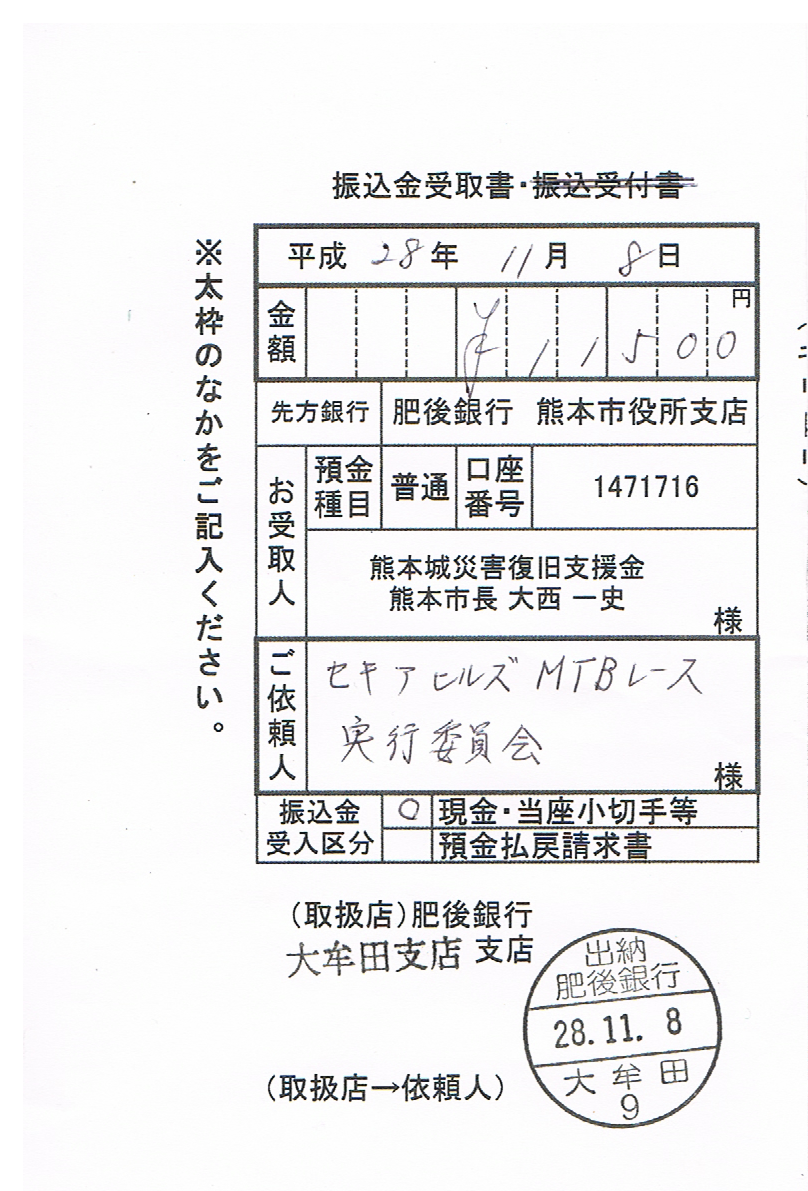 振込金受取書・振込受付書
※太枠のなかをご記入ください。
平成 28年 11月 8日
金額 ¥11500 円
先方銀行 肥後銀行 熊本市役所支店
お受取人 預金種目 普通 口座番号 1471716
熊本城災害復旧支援金
熊本市長 大西 一史 様
ご依頼人 セキアヒルズMTBレース
実行委員会 様
振込金受入区分 ○ 現金・当座小切手等
預金払戻請求書
(取扱店)肥後銀行
大牟田支店 支店
出納
肥後銀行
28.11. 8
大牟田
9
(取扱店→依頼人)